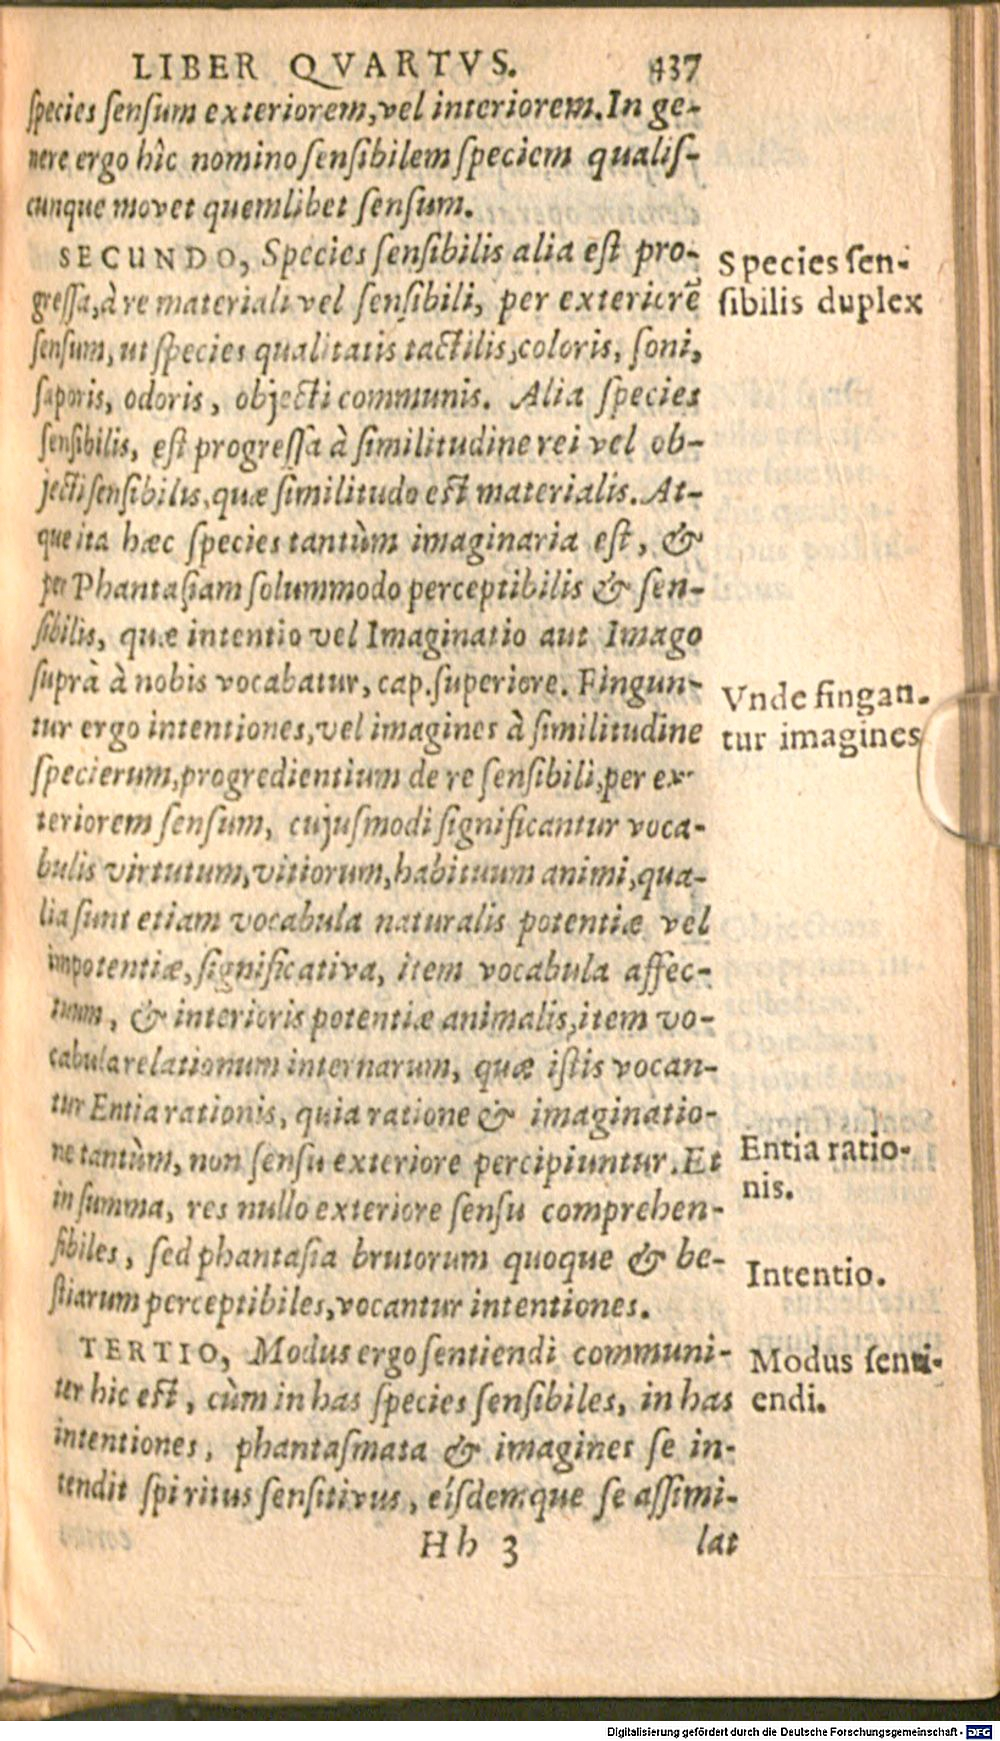 LIBER QVARTVS. 437
species sensum exteriorem, vel interiorem. In ge-
nere ergo hîc nomino sensibilem speciem qualis-
cunque movet quemlibet sensum.
SECUNDO, Species sensibilis alia est pro-
gressa, à re materiali vel sensibili, per exteriorẽ
sensum, ut species qualitatis tactilis, coloris, soni,
saporis, odoris, objecti communis. Alia species
sensibilis, est progressa à similitudine rei vel ob-
jecti sensibilis, quæ similitudo est materialis. At-
que ita hæc species tantùm imaginaria est, &
per Phantasiam solummodo perceptibilis & sen-
sibilis, quæ intentio vel Imaginatio aut Imago
suprà à nobis vocabatur, cap. superiore. Fingun-
tur ergo intentiones, vel imagines à similitudine
specierum, progredientium de re sensibili, per ex-
teriorem sensum, cujusmodi significantur voca-
bulis virtutum, vitiorum, habituum animi, qua-
lia sunt etiam vocabula naturalis potentiæ vel
impotentiæ, significativa, item vocabula affec-
tuum, & interioris potentiæ animalis, item vo-
cabula relationum internarum, quæ istis vocan-
tur Entia rationis, quia ratione & imaginatio-
ne tantùm, non sensu exteriore percipiuntur. Et
in summa, res nullo exteriore sensu comprehen-
sibiles, sed phantasia brutorum quoque & be-
stiarum perceptibiles, vocantur intentiones.
TERTIO, Modus ergo sentiendi communi-
ter hic est, cùm in has species sensibiles, in has
intentiones, phantasmata & imagines se in-
tendit spiritus sensitivus, eísdemque se assimi-
Hh 3 lat
Species sen-
sibilis duplex
Vnde fingan-
tur imagines
Entia ratio-
nis.
Intentio.
Modus senti-
endi.
Digitalisierung gefördert durch die Deutsche Forschungsgemeinschaft - DFG